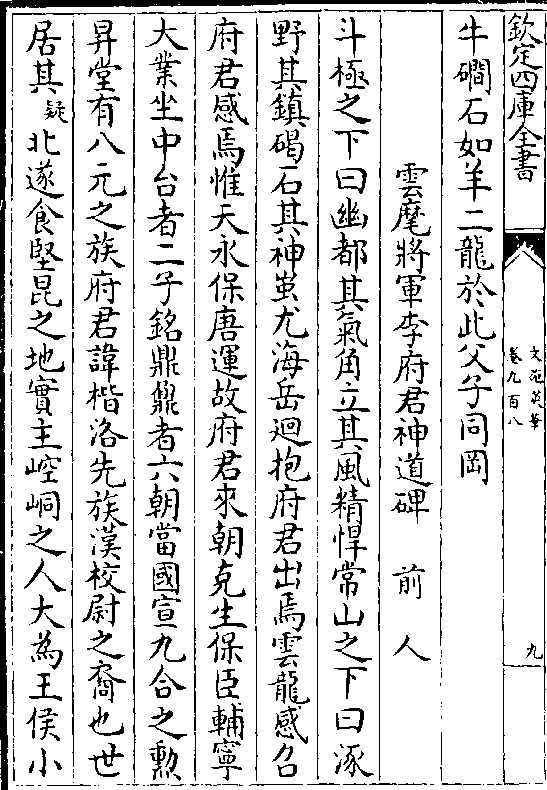 欽定四庫全書
文苑英華
卷九百八
九
牛礀石如羊二龍於此父子同岡
雲麾將軍李府君神道碑 前人
斗極之下曰幽都其氣角立其風精悍常山之下曰涿
野其鎮碣石其神蚩尤海岳迴抱府君出焉雲龍感召
府君感焉惟天永保唐運故府君來朝克生保臣輔寧
大業坐中台者二子銘鼎鼐者六朝當國宣九合之勲
昇堂有八元之族府君諱楷洛先族漢校尉之裔也世
居其疑北遂食堅昆之地實主崆峒之人大為王侯小